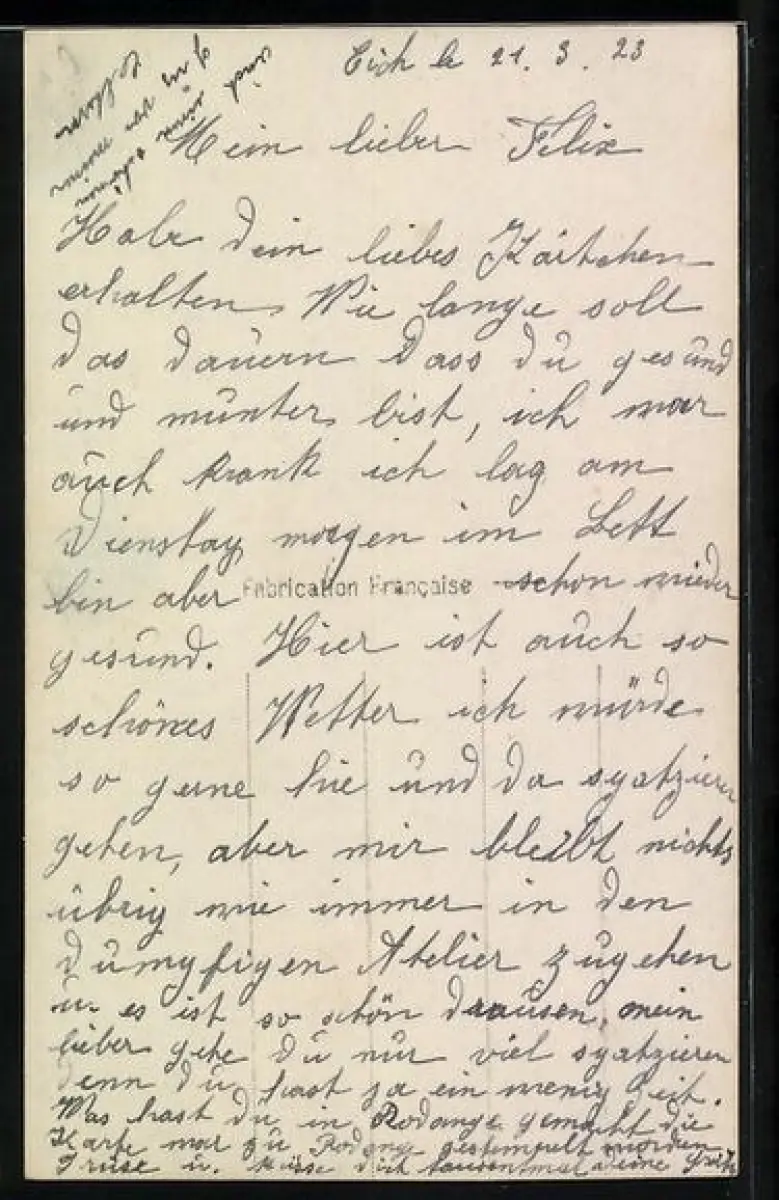 Eich le 21. 3. 23
Mein lieber Felix
Habe dein liebes Kärtchen
erhalten. Wie lange soll
das dauern dass du gesund
und munter bist, ich war
auch krank ich lag am
Dienstag morgen im Bett
bin aber schon wieder
Fabrication Française
gesund. Hier ist auch so
schönes Wetter ich würde
so gerne hie und da spatzieren
gehen, aber mir bleibt nichts
übrig wie immer in den
dumpfigen Atelier zugehen
u. es ist so schön drausen, mein
lieber gehe du nur viel spatzieren
denn du hast ja ein wenig Zeit.
Was hast du in Rodange gemacht die
Karte war zu Rodange gestempelt worden
Grüse u. küsse dich tausentmal deine